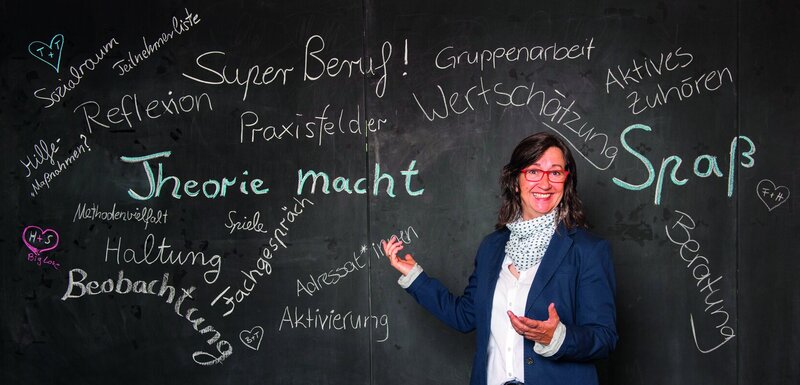 T + T
Sozialraum
Teilnehmerliste
Super Beruf!
Gruppenarbeit
Aktives
Zuhören
Reflexion
Praxisfelder
Wertschätzung
Hilfe-
Maßnahmen?
Theorie macht
Spaß
F + H
Methodenvielfalt
Spiele
Fachgespräch
H + S
Big Love
Haltung
Adressat*innen
Beratung
Beobachtung
B + T
Aktivierung